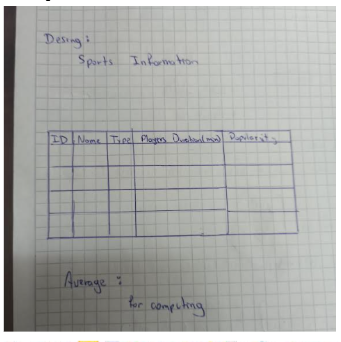 Desing :
Sports Information
ID Name Type Players Duration(min) Popularity
Average :
for computing